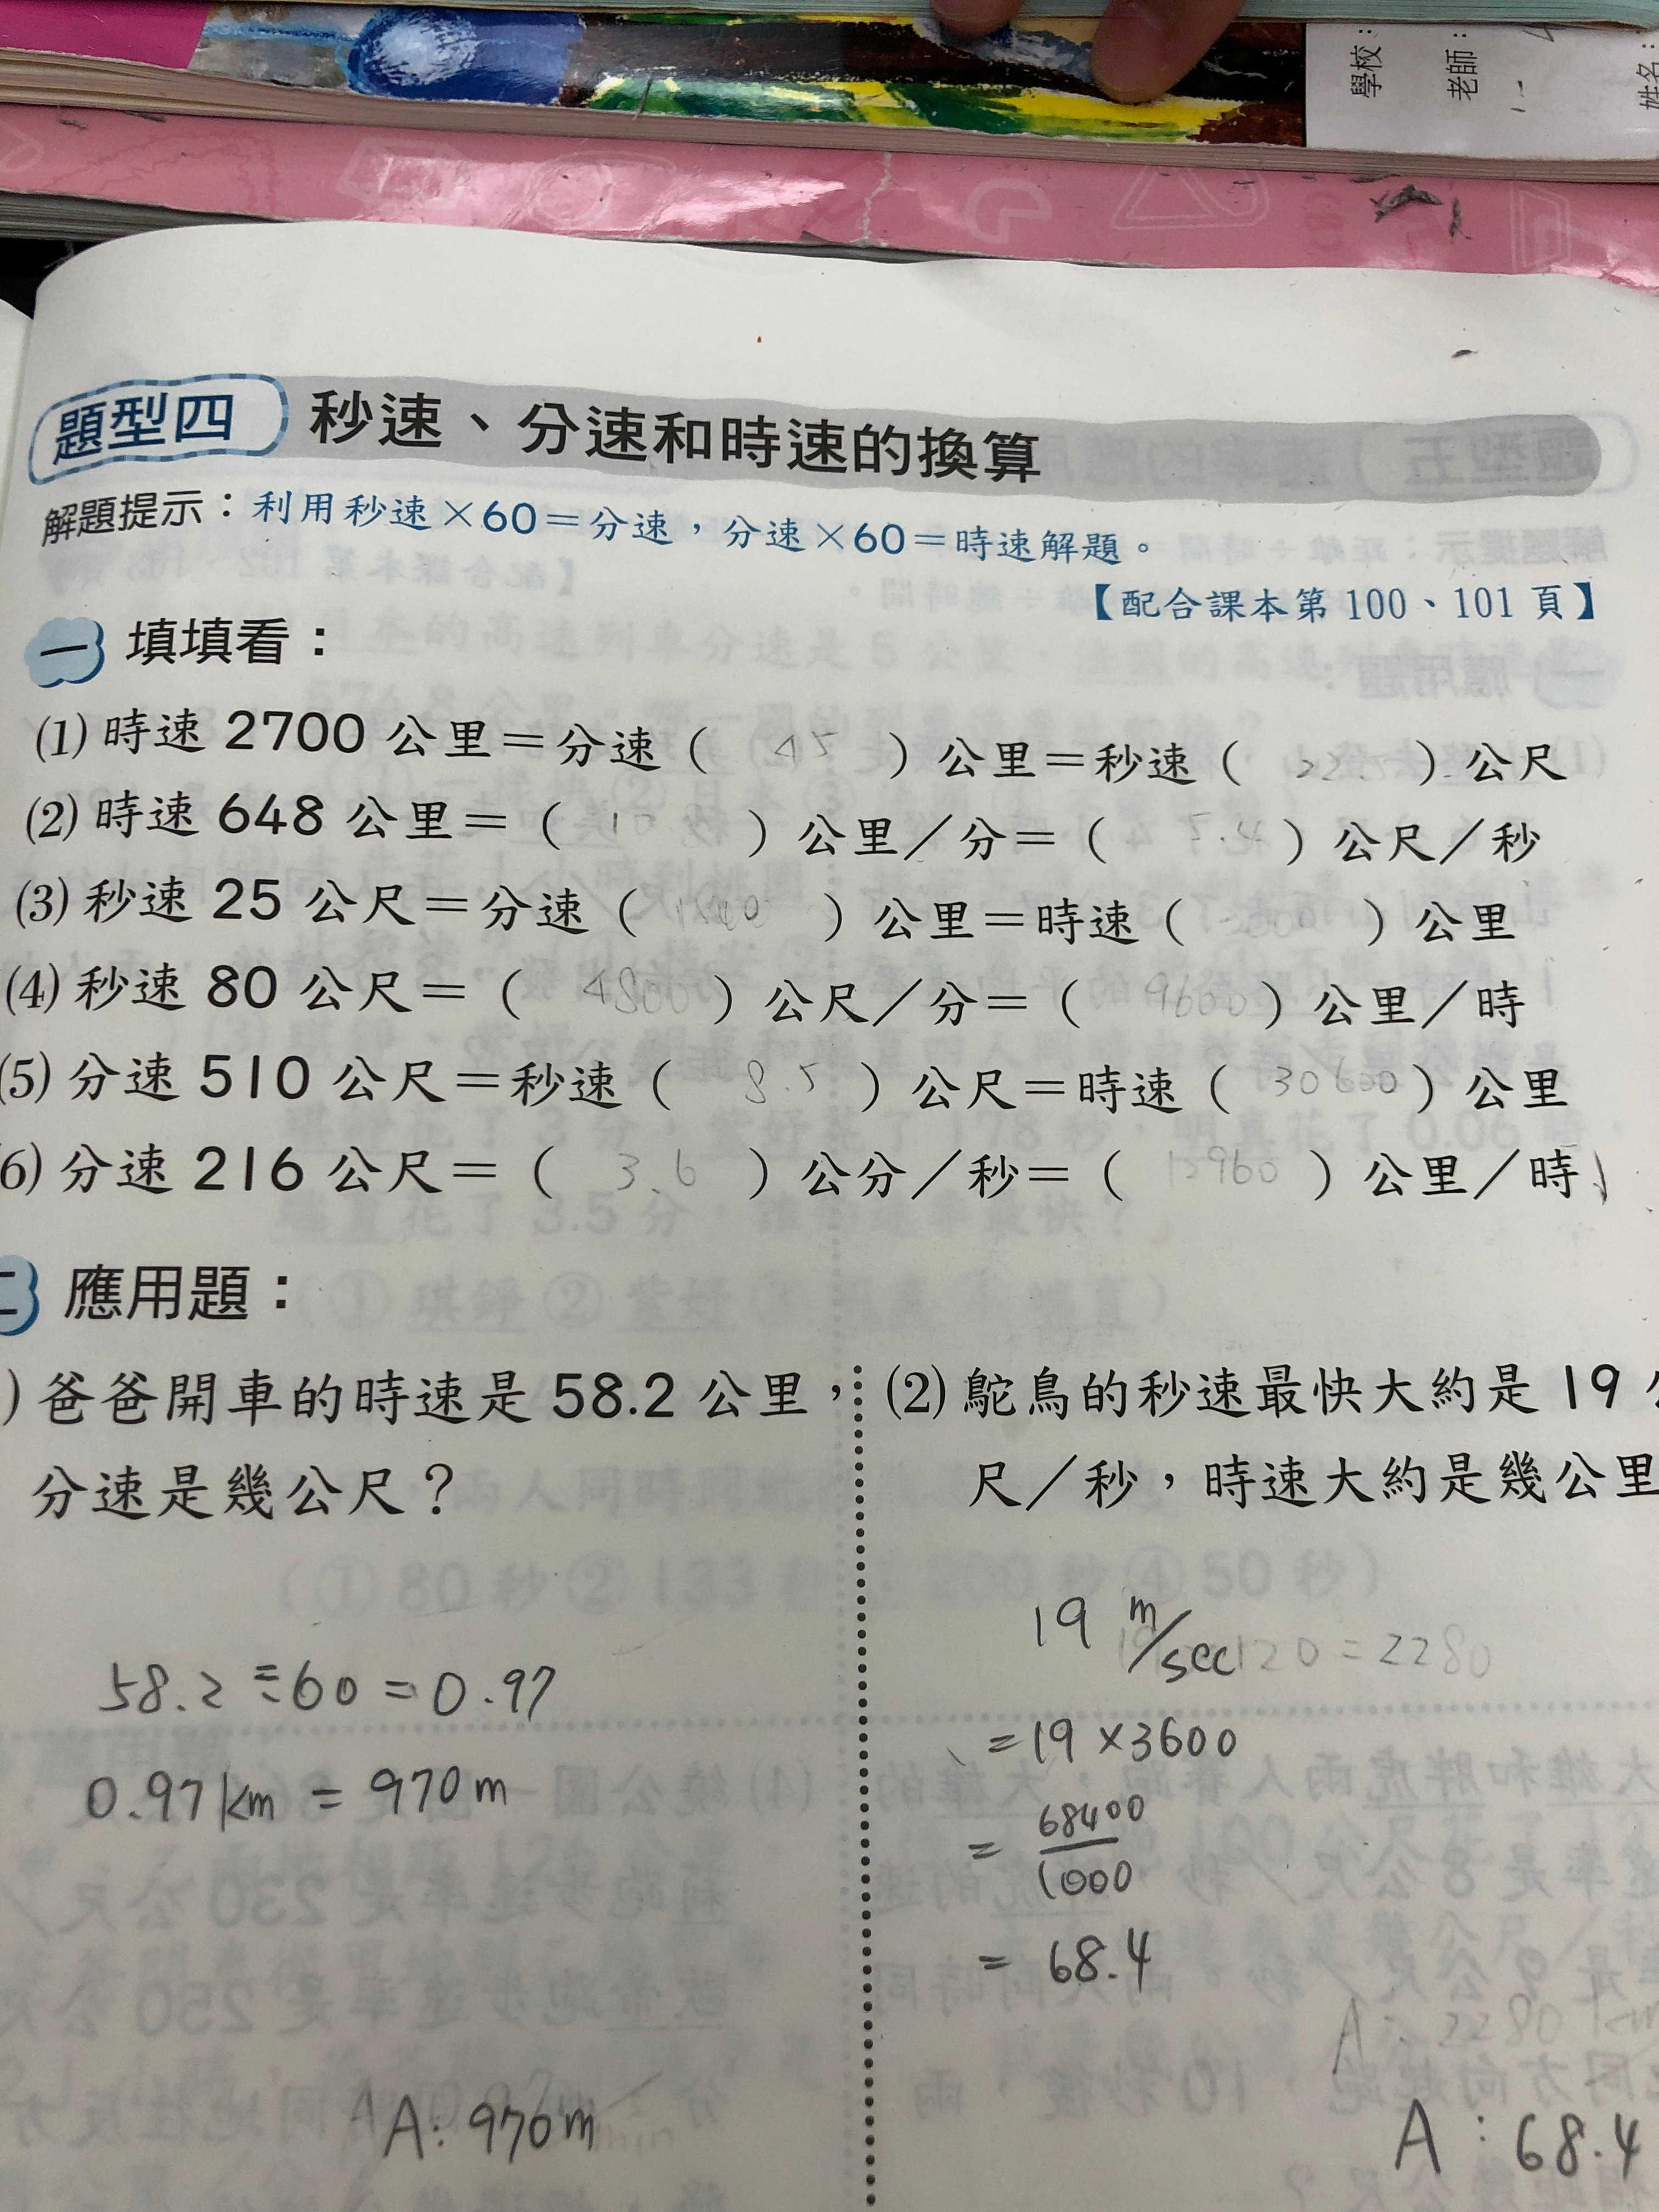 學校：
老師：
姓名：
題型四 秒速、分速和時速的換算
解題提示：利用秒速×60＝分速，分速×60＝時速解題。
【配合課本第 100、101 頁】
一 填填看：
(1) 時速 2700 公里＝分速（ 45 ）公里＝秒速（ ）公尺
(2) 時速 648 公里＝（ ）公里／分＝（ ）公尺／秒
(3) 秒速 25 公尺＝分速（ ）公里＝時速（ ）公里
(4) 秒速 80 公尺＝（ 4800 ）公尺／分＝（ 9600 ）公里／時
(5) 分速 510 公尺＝秒速（ 8.5 ）公尺＝時速（ 30600 ）公里
6) 分速 216 公尺＝（ 3.6 ）公分／秒＝（ 12960 ）公里／時
二 應用題：
) 爸爸開車的時速是 58.2 公里，
分速是幾公尺？
58.2 ÷ 60 = 0.97
0.97 km = 970 m
A: 970 m
(2) 鴕鳥的秒速最快大約是 19 公
尺／秒，時速大約是幾公里
120 = 2280
19 m/sec
= 19 × 3600
= 68400/1000
= 68.4
A: 2280 km
A : 68.4